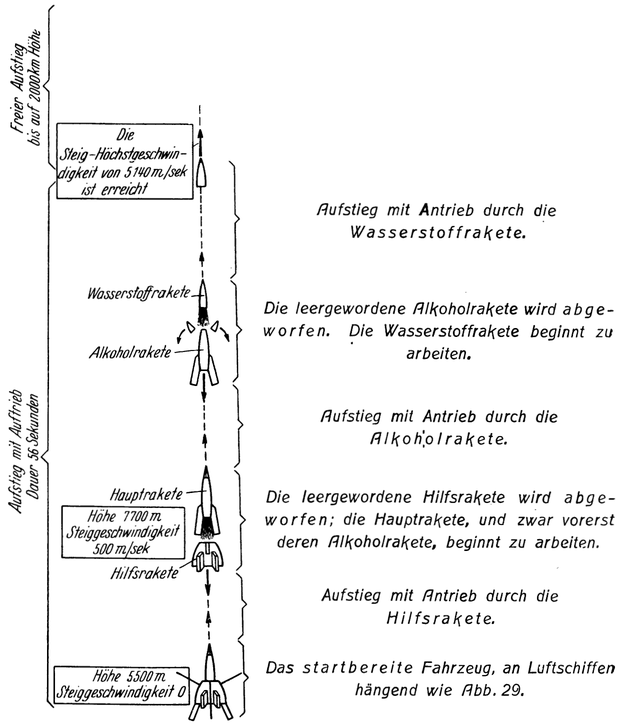 Freier Aufstieg
bis auf 2000 km Höhe
Die
Steig-Höchstgeschwin-
digkeit von 5140 m/sek
ist erreicht
Aufstieg mit Antrieb durch die
Wasserstoffrakete.
Wasserstoffrakete
Die leergewordene Alkoholrakete wird abge-
worfen. Die Wasserstoffrakete beginnt zu
arbeiten.
Alkoholrakete
Aufstieg mit Auftrieb
Dauer 56 Sekunden
Aufstieg mit Antrieb durch die
Alkoholrakete.
Hauptrakete
Höhe 7700 m
Steiggeschwindigkeit
500 m/sek
Hilfsrakete
Die leergewordene Hilfsrakete wird abge-
worfen; die Hauptrakete, und zwar vorerst
deren Alkoholrakete, beginnt zu arbeiten.
Aufstieg mit Antrieb durch die
Hilfsrakete.
Höhe 5500 m
Steiggeschwindigkeit 0
Das startbereite Fahrzeug, an Luftschiffen
hängend wie Abb. 29.